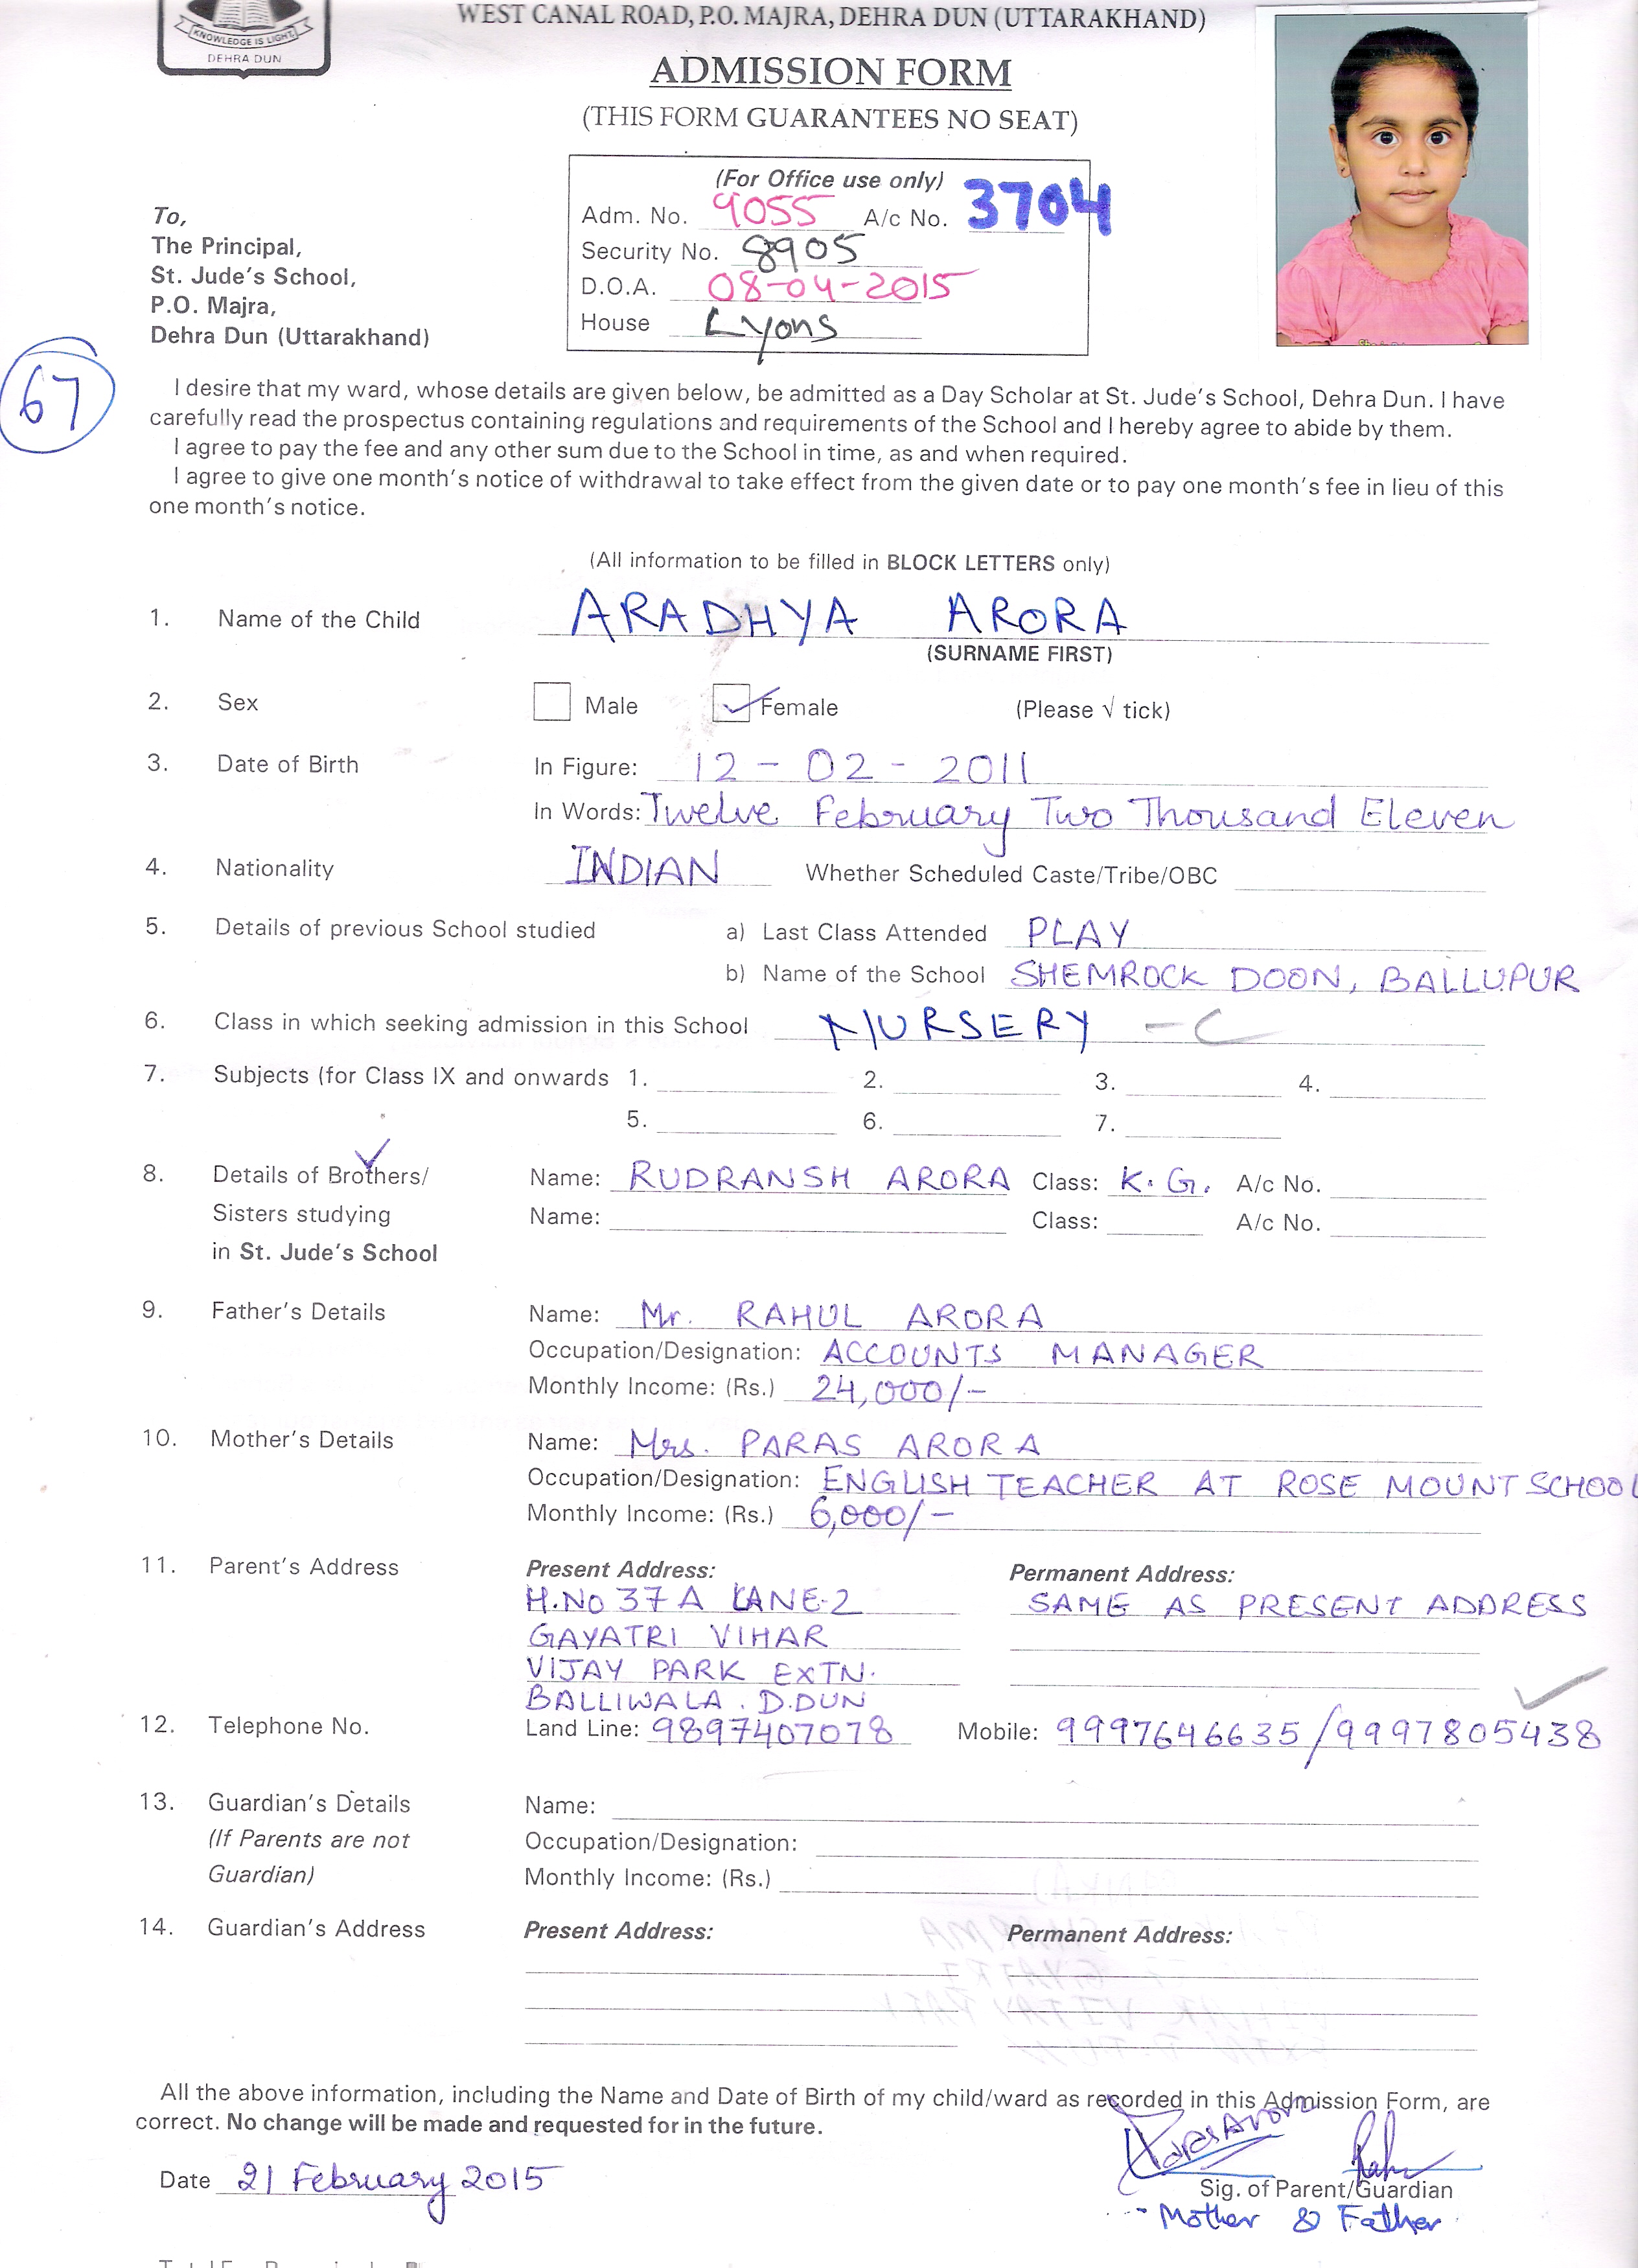 KNOWLEDGE IS LIGHT
DEHRA DUN
WEST CANAL ROAD, P.O. MAJRA, DEHRA DUN (UTTARAKHAND)
ADMISSION FORM
(THIS FORM GUARANTEES NO SEAT)
(For Office use only)
Adm. No. 9055 A/c No. 3704
Security No. 8905
D.O.A. 08-04-2015
House Lyons
To,
The Principal,
St. Jude's School,
P.O. Majra,
Dehra Dun (Uttarakhand)
67
I desire that my ward, whose details are given below, be admitted as a Day Scholar at St. Jude's School, Dehra Dun. I have
carefully read the prospectus containing regulations and requirements of the School and I hereby agree to abide by them.
I agree to pay the fee and any other sum due to the School in time, as and when required.
I agree to give one month's notice of withdrawal to take effect from the given date or to pay one month's fee in lieu of this
one month's notice.
(All information to be filled in BLOCK LETTERS only)
1. Name of the Child ARADHYA ARORA
(SURNAME FIRST)
2. Sex Male Female (Please √ tick)
3. Date of Birth In Figure: 12 - 02 - 2011
In Words: Twelve February Two Thousand Eleven
4. Nationality INDIAN Whether Scheduled Caste/Tribe/OBC
5. Details of previous School studied a) Last Class Attended PLAY
b) Name of the School SHEMROCK DOON, BALLUPUR
6. Class in which seeking admission in this School NURSERY - C
7. Subjects (for Class IX and onwards 1. 2. 3. 4.
5. 6. 7.
8. Details of Brothers/ Name: RUDRANSH ARORA Class: K.G. A/c No.
Sisters studying Name: Class: A/c No.
in St. Jude's School
9. Father's Details Name: Mr. RAHUL ARORA
Occupation/Designation: ACCOUNTS MANAGER
Monthly Income: (Rs.) 24,000/-
10. Mother's Details Name: Mrs. PARAS ARORA
Occupation/Designation: ENGLISH TEACHER AT ROSE MOUNT SCHOOL
Monthly Income: (Rs.) 6,000/-
11. Parent's Address Present Address: Permanent Address:
H.No 37 A LANE-2 SAME AS PRESENT ADDRESS
GAYATRI VIHAR
VIJAY PARK EXTN.
BALLIWALA . D.DUN
12. Telephone No. Land Line: 9897407078 Mobile: 9997646635/9997805438
13. Guardian's Details Name:
(If Parents are not Occupation/Designation:
Guardian) Monthly Income: (Rs.)
14. Guardian's Address Present Address: Permanent Address:
All the above information, including the Name and Date of Birth of my child/ward as recorded in this Admission Form, are
correct. No change will be made and requested for in the future.
Date 21 February 2015
Sig. of Parent/Guardian
Mother & Father